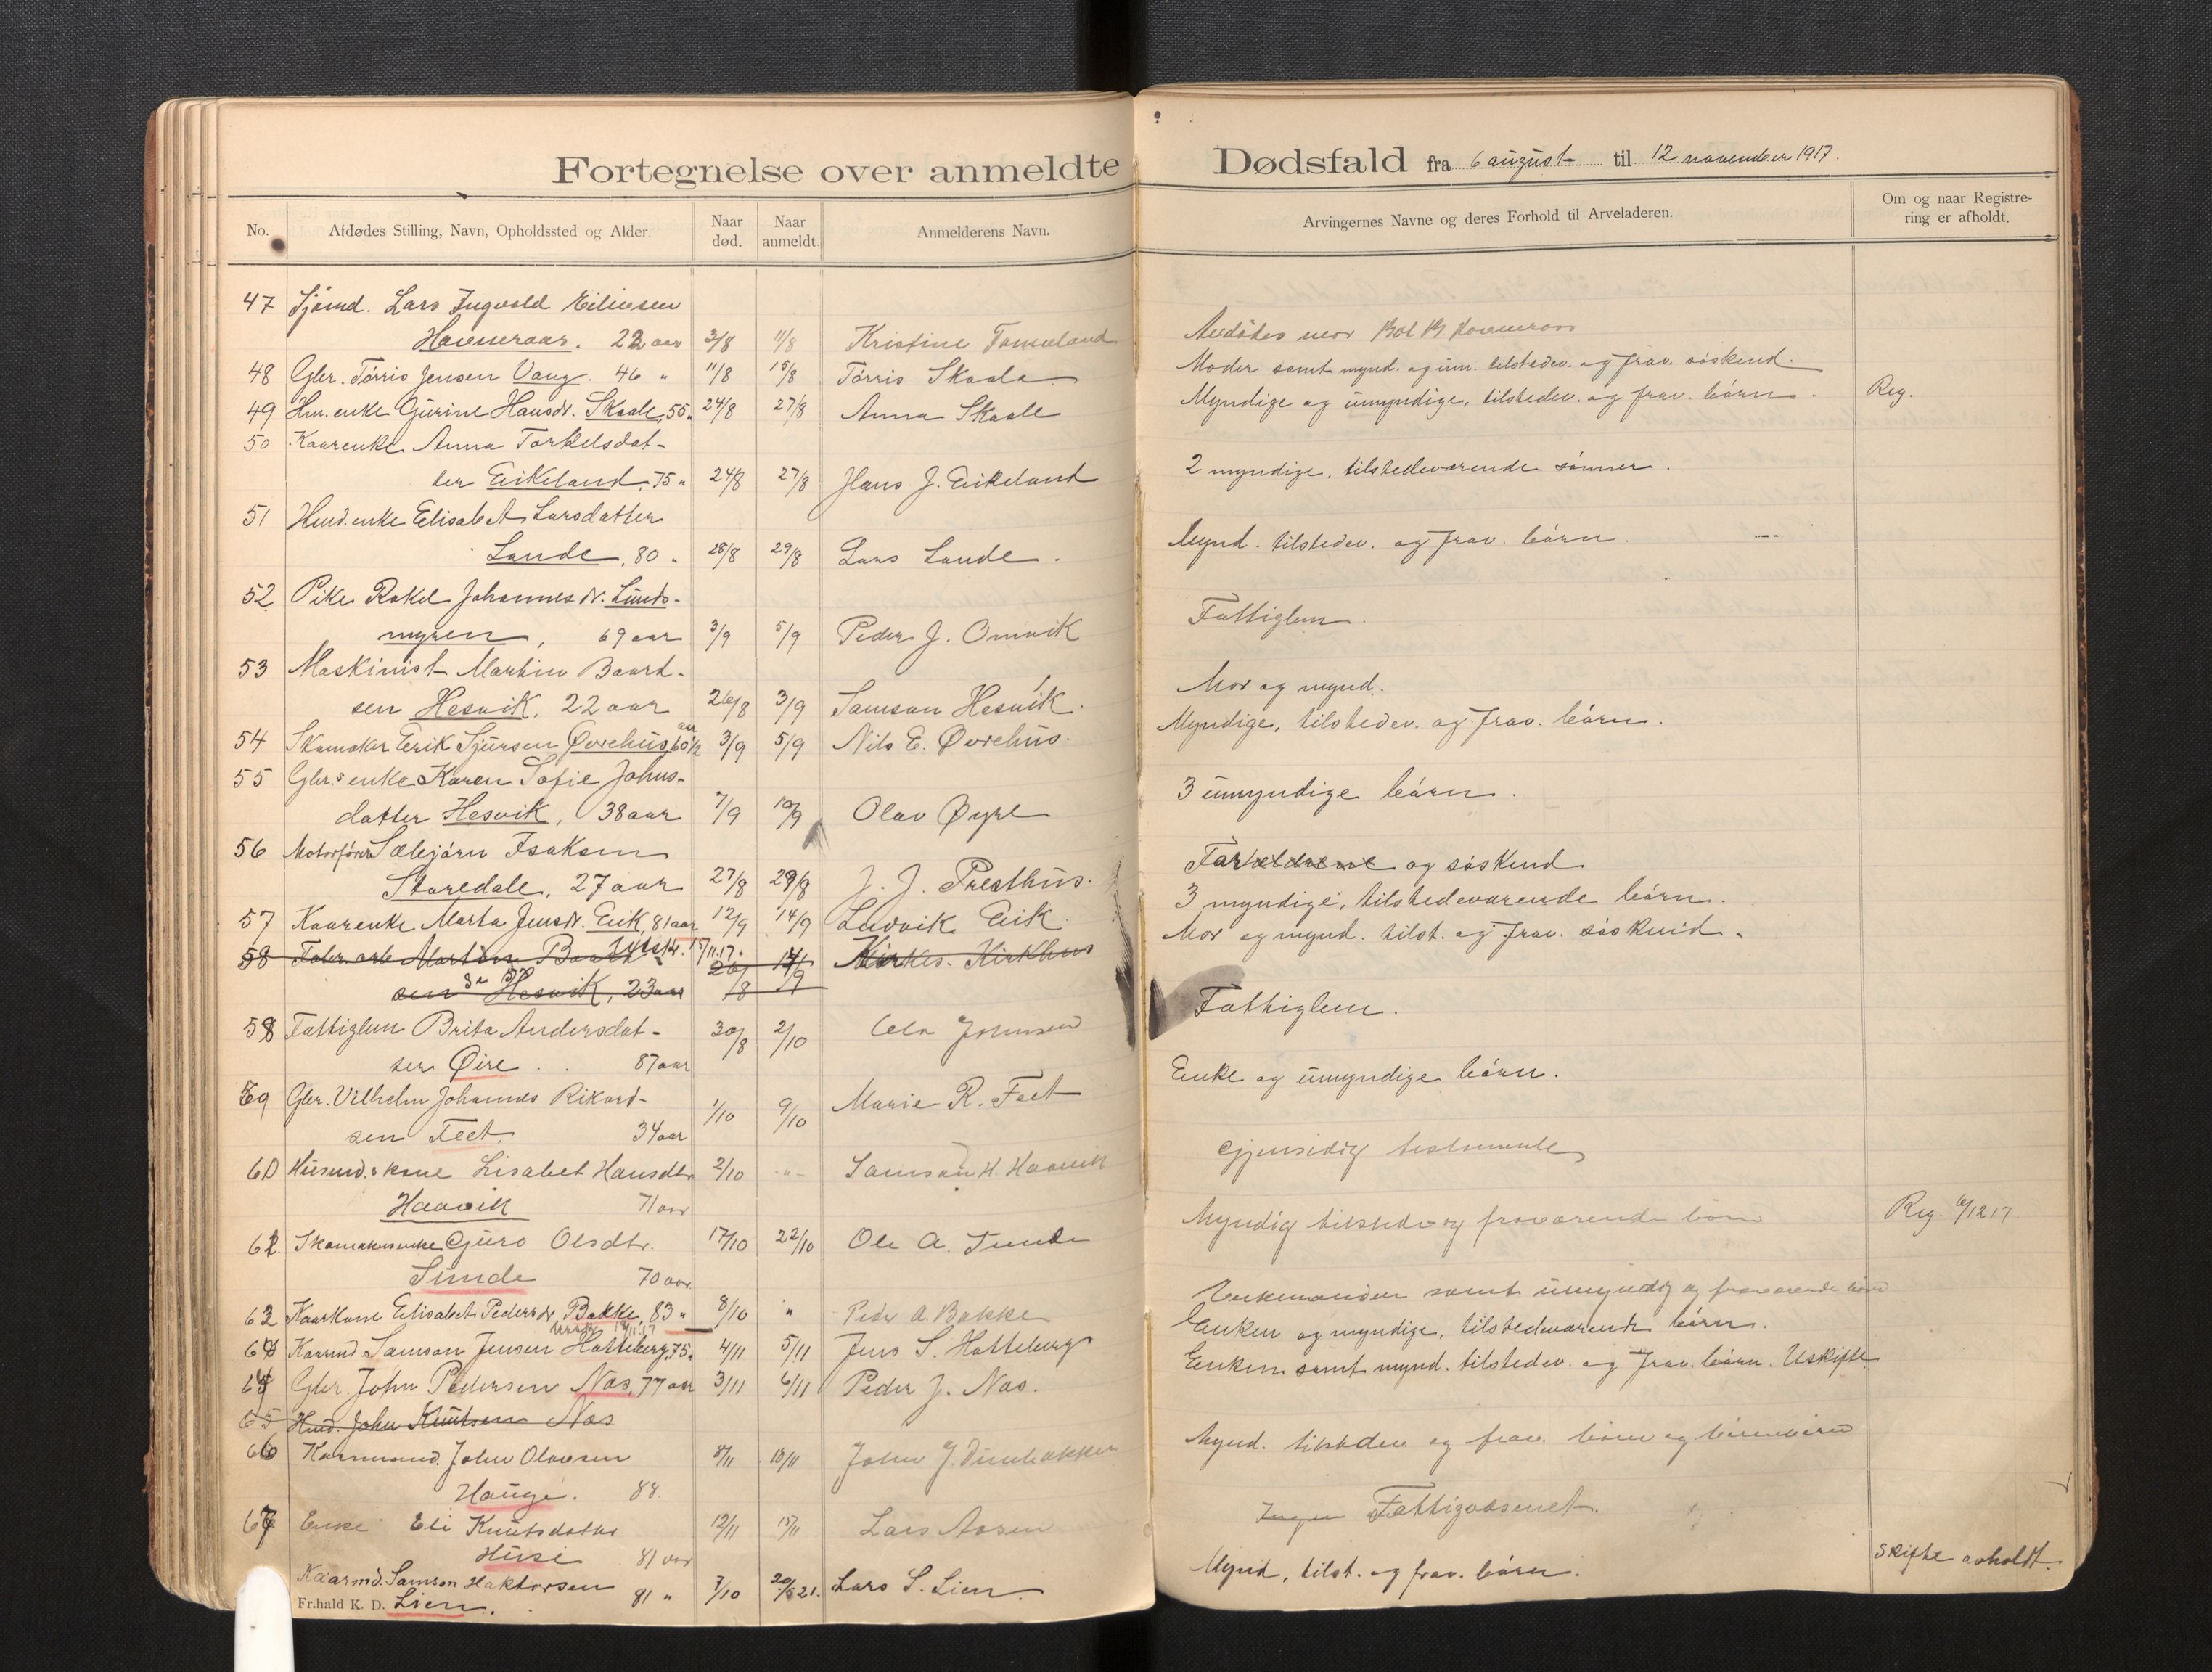 Fortegnelse over anmeldte
No.
Afdødes Stilling, Navn, Opholdssted og Alder.
Naar død.
Naar anmeldt.
Anmelderens Navn.
47 Sjømd. Lars Ingvald Eilivsen
Havneraas. 22 aar 3/8 11/8 Kristine
48 Gbr. Tørris Jensen Vang. 46 " 11/8 15/8 Tørris Skaala
49 Hm. enke Gurine Hansdr. Skaale, 55 " 24/8 27/8 Anna Skaale
50 Kaarenke Anna Torkelsdat-
ter Eikeland, 75 " 24/8 27/8 Hans J. Eikeland
51 Husd. enke Elisabet Larsdatter
Lande, 80 " 28/8 29/8 Lars Lande.
52 Pike Rakel Johannesdr. Lunds-
myren, 69 aar 3/9 5/9 Peder J. Omvik
53 Maskinist Martin Baard-
sen Hesvik, 22 aar 26/8 3/9 Samson Hesvik.
54 Skomaker Erik Sjursen Øvrehus, 60 1/2 aar 3/9 5/9 Nils E. Øvrehus.
55 Gbr.s enke Karen Sofie Johns-
datter Hesvik, 38 aar 7/9 10/9 Olav Øyre
56 Motorfører Sæbjørn Isaksen
Skaredale, 27 aar 27/8 29/8 J. J. Presthus.
57 Kaarenke Marta Jensdr. Eik, 81 aar 12/9 14/9 Ludvik Eik.
58 Fabr. arb. Martin Baard- 15/11.17.
sen Hesvik, 23 aar 26/8 Kirkes. Kirkhus
58 Fattiglem Brita Andersdat- 30/8 2/10 Ola Johnsen
ter Øire 87 aar
59 Gbr. Vilhelm Johannes Rikard- 1/10 9/10 Marie R. Feet
sen Feet. 34 aar
60 Husmd.s kone Lisabet Hansdtr 2/10 -"- Samson H. Haavik
Haavik 71 aar
61. Skomakerenke Guro Olsdtr. 17/10 22/10 Ole A. Sunde
Sunde 70 aar
62 Kaarkone Elisabet Pedersdr Bakke, 83 " 8/10 " Peder A Bakke
63 Kaarmd Samson Jensen Hatteberg, 75 " 4/11 5/11 Jens S. Hatteberg
64 Gbr. John Pedersen Næs, 77 aar 3/11 6/11 Peder J. Næs.
65 Husd. John Knutsen Næs
66 Kaarmand. John Olavsen 8/11 10/11 John J.
Hauge. 88.
67 Enke Eli Knutsdatter 12/11 15/11 Lars Aasen
Huse 81 aar
Kaarmd. Samson Haktorsen
Lien. 81 " 7/10 20/5 21. Lars S. Lien.
Fr.hald K. D.
Dødsfald fra 6 august til 12 november 1917.
Arvingernes Navne og deres Forhold til Arveladeren.
Om og naar Registre-
ring er afholdt.
Avdødes mor
Moder samt mynd. og um. tilstedev. og frav. søskend.
Myndige og umyndige, tilstedev. og frav. børn. Reg.
2 myndige, tilstedeværende sønner.
Mynd. tilstedev. og frav. børn.
Fattiglem.
Mor og mynd.
Myndige, tilstedev. og frav. børn.
3 umyndige børn.
Forældrene og søskend
3 myndige, tilstedeværende børn.
Mor og mynd. tilst. og frav. søskend.
Fattiglem.
Enke og umyndige børn.
Gjensidig testamente
Myndig tilstede og fraværende børn Reg. 6/12 17.
Enkemanden samt umyndig og fraværende børn
Enken og myndige, tilstedeværende børn.
Enken samt mynd. tilstedev. og frav. børn. Uskifte
Mynd. tilstedev og frav. børn og børnebørn
Ingen Fattigvæsenet.
Mynd, tilst. og frav. børn. Skifte avholdt.